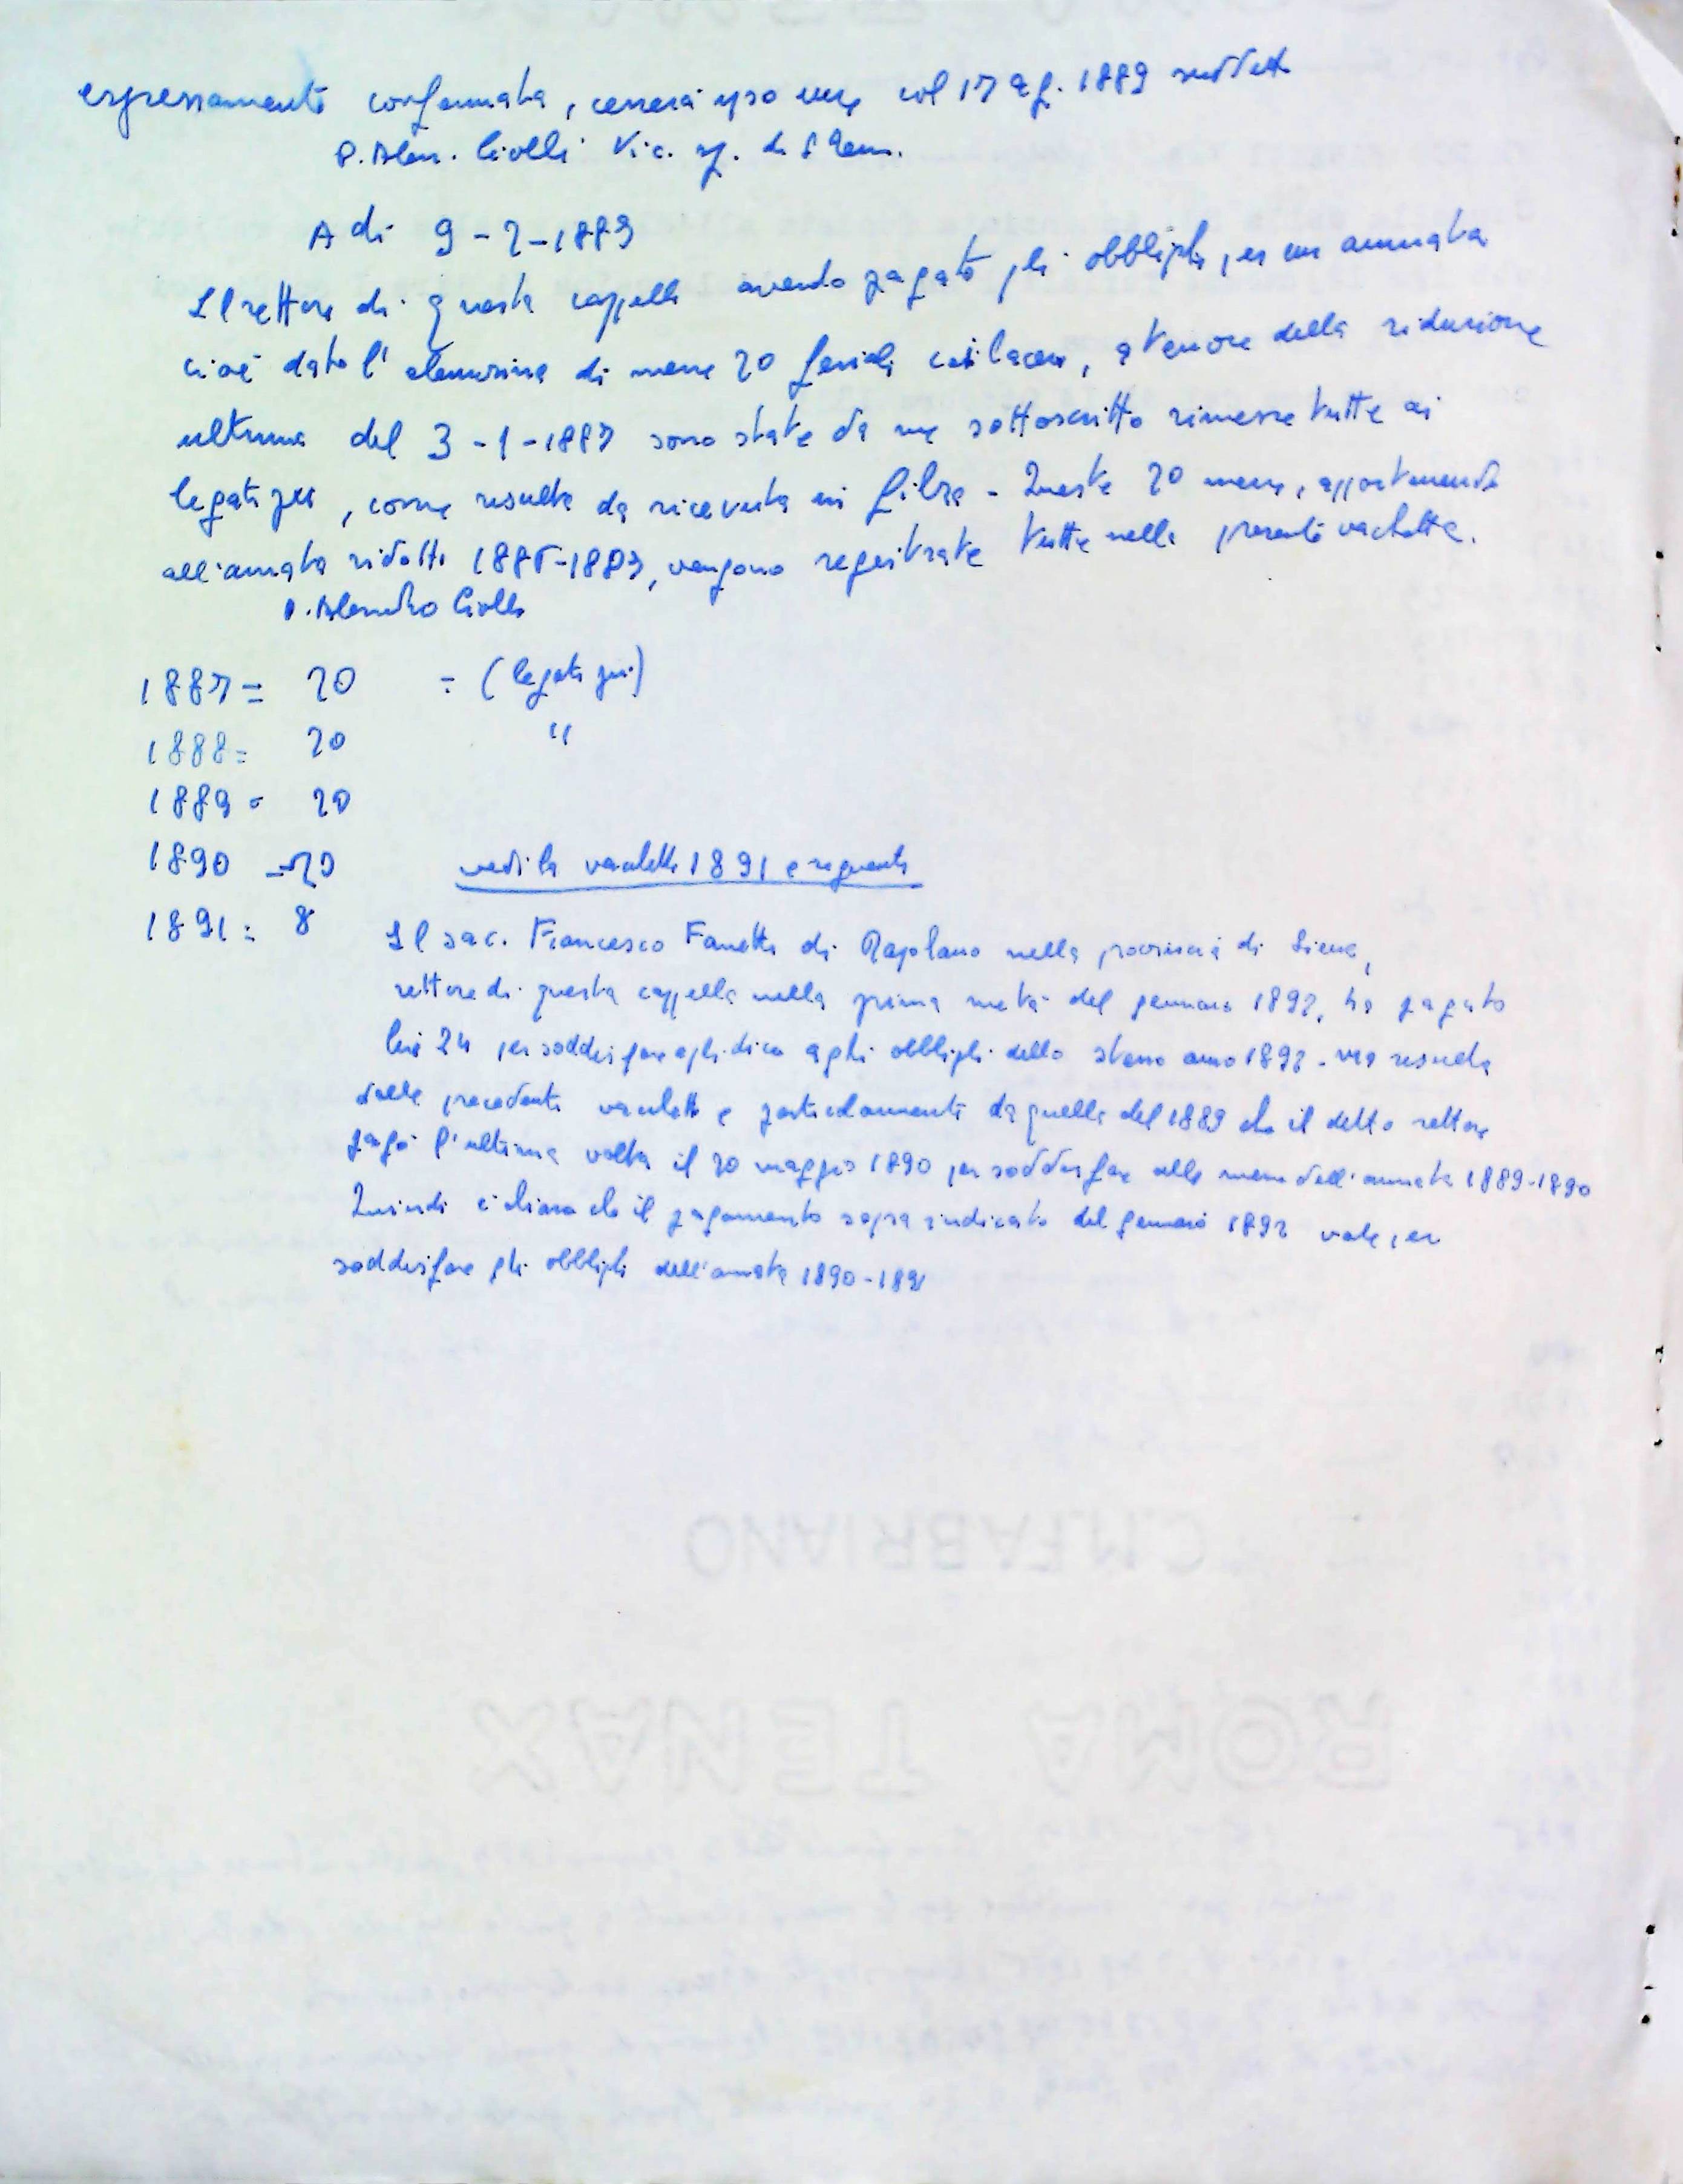 espressamente confermata, cesserà ipso iure col 17 ag. 1889 suddetto
P. Aless. Ciolli Vic. sp. di S Rem.
A dì 9-2-1889
Il rettore di questa cappella avendo pagato gli obblighi per un annata
cioè dato l'elemosina di messe 20 feriali così lacere, a tenore della riduzione
ultima del 3-1-1887 sono state da me sottoscritto rimesse tutte ai
legati pii, come resulta da ricevuta in filza - Queste 20 messe, appartenenti
all'annata ridotta, vengono registrate tutte nella presente vacchetta.
P. Alessandro Ciolli
1887 = 20 = (legati pii)
1888 = 20 "
1889 = 20
1890 - 20 vedi la vacchetta 1891 e seguenti
1891 = 8
Il sac. Francesco Fanetti di Rapolano nella provincia di Siena,
rettore di questa cappella nella prima metà del gennaio 1892, ha pagato
lire 24 per soddisfare egli dice agli obblighi dello stesso anno 1892 - ma resulta
dalle precedenti vacchette e particolarmente da quella del 1889 che il detto rettore
pagò l'ultima volta il 20 maggio 1890 per soddisfare alle messe dell'annata 1889-1890
Quindi è chiaro che il pagamento sopra indicato del gennaio 1892 vale per
soddisfare gli obblighi dell'annata 1890-1891
C.M.FABRIANO
ROMA TENAX